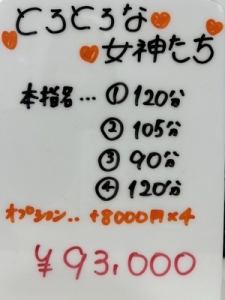 とろとろな
女神たち
本指名… ① 120分
② 105分
③ 90分
④ 120分
オプション.. +8000円×4
¥93,000